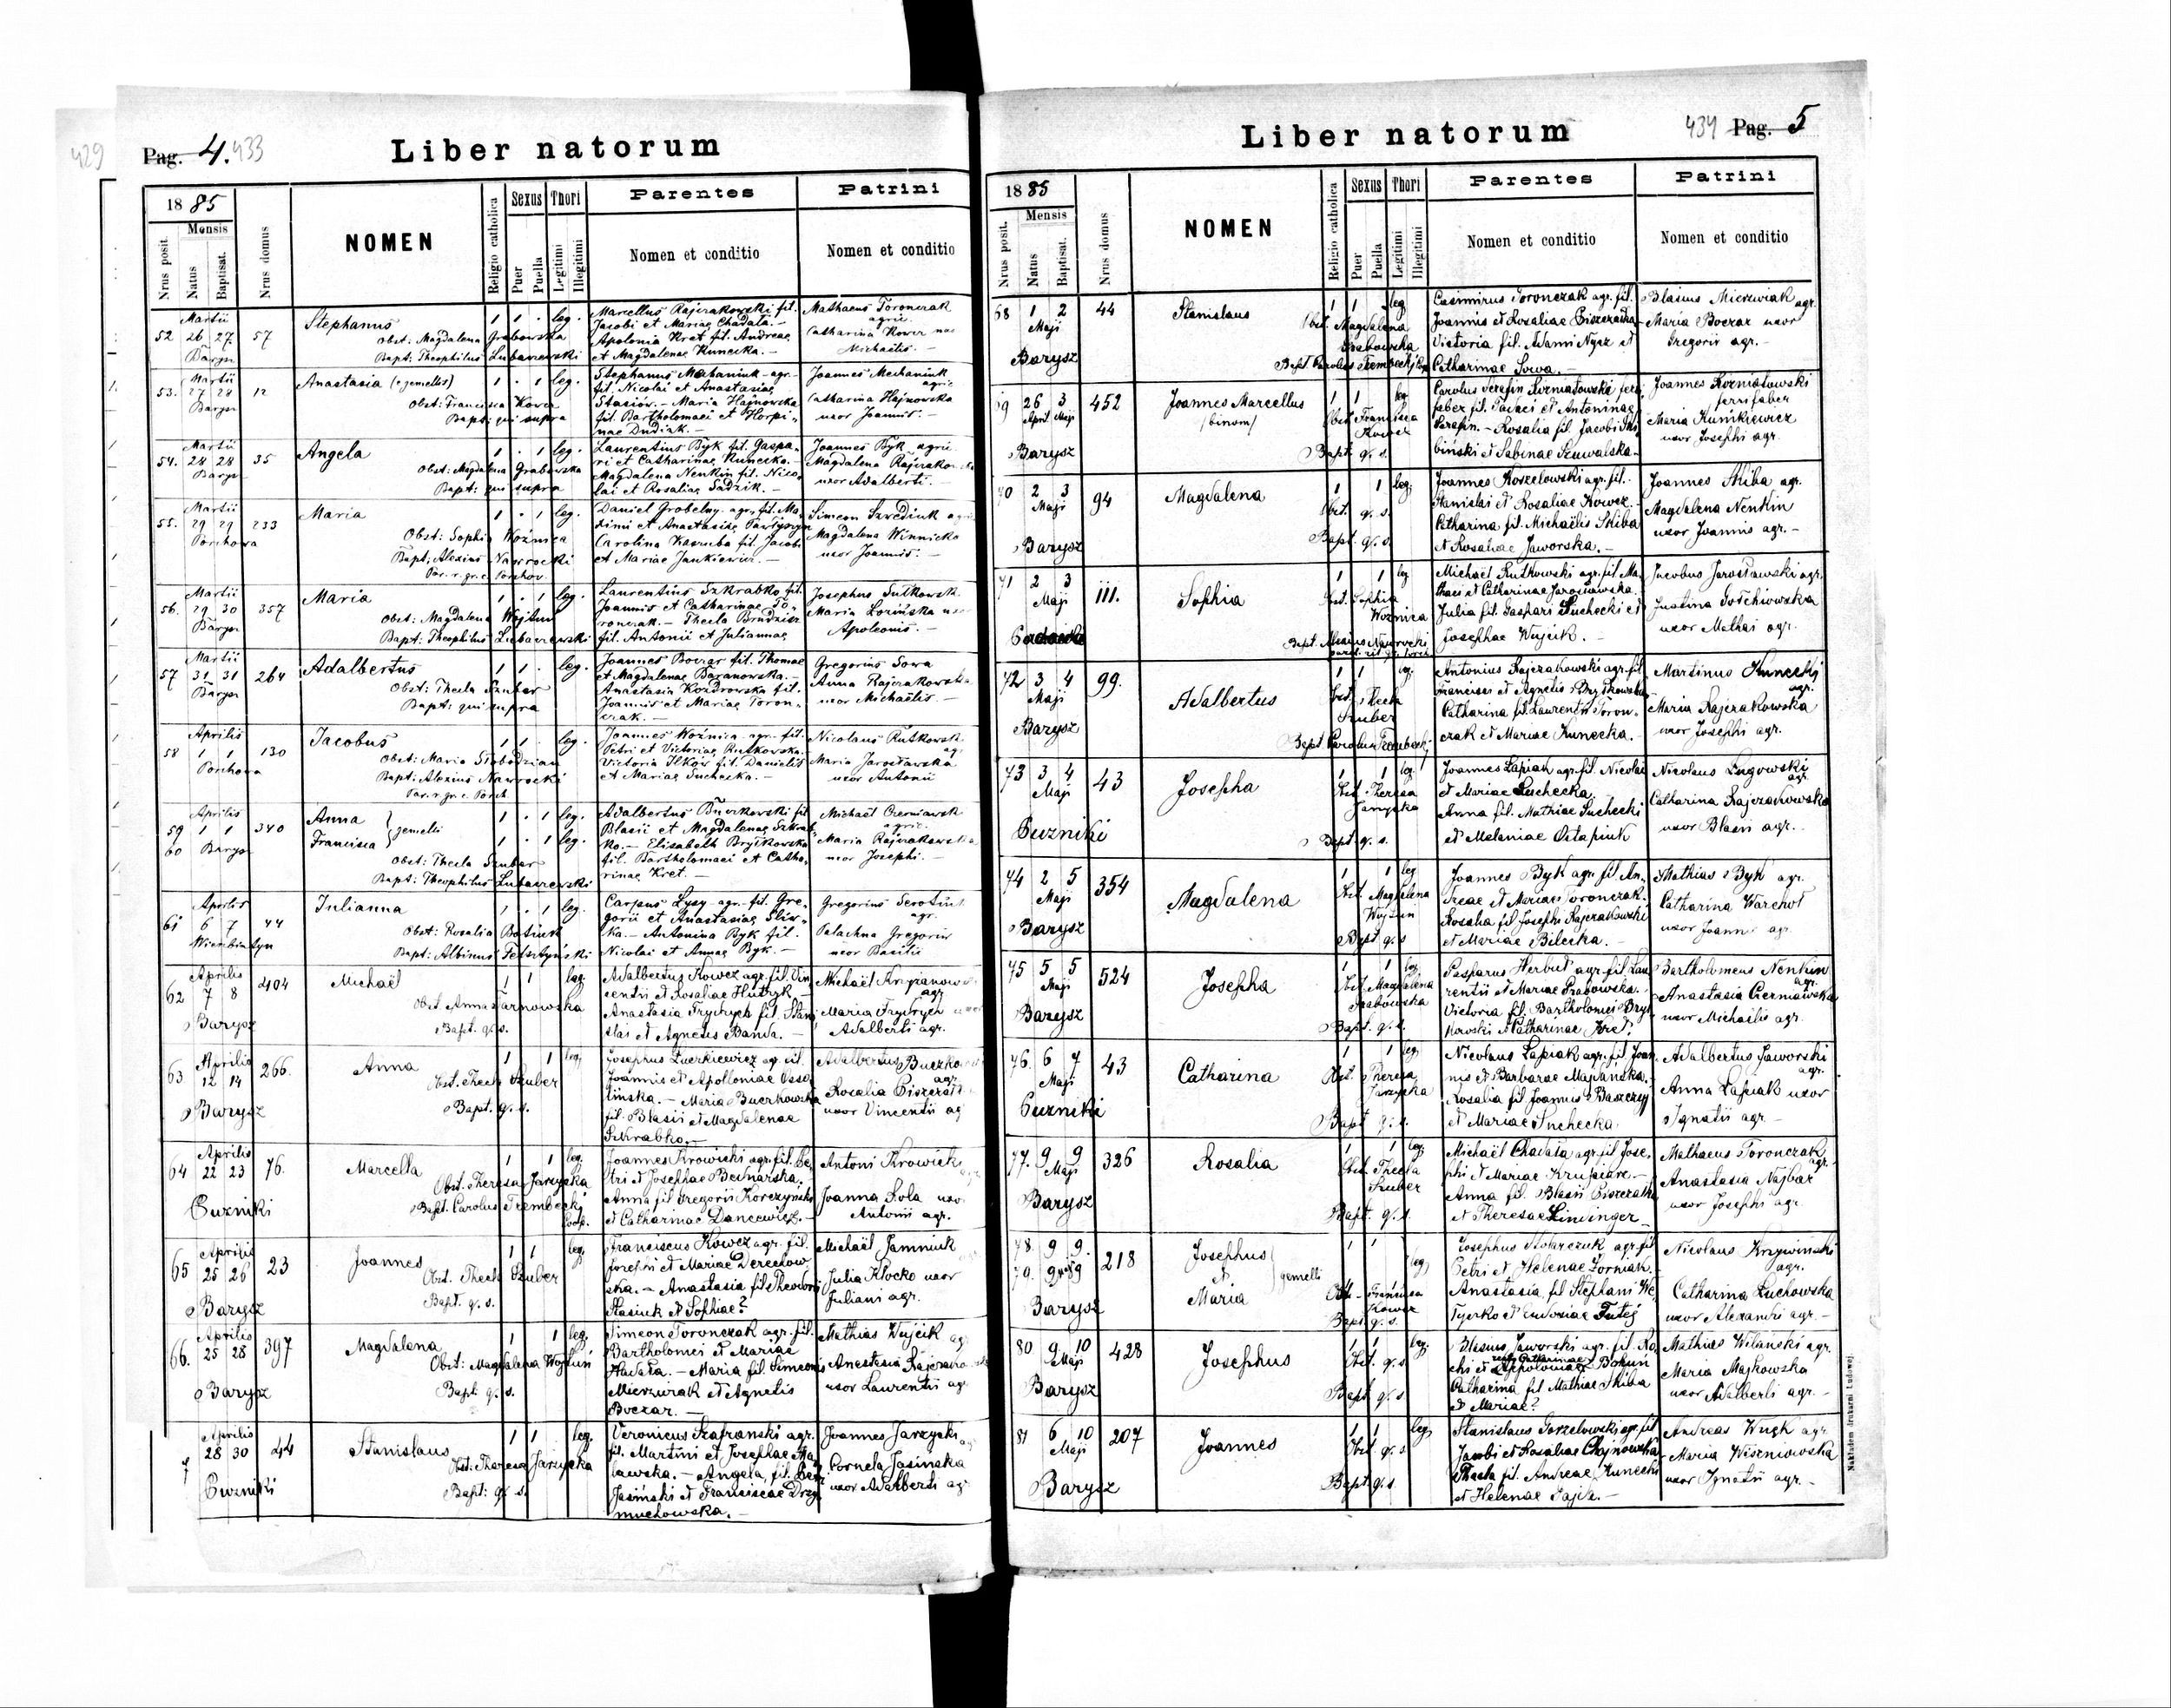 429
Pag. 4. 433
Liber natorum
1885
Mensis
Nrus posit.
Natus
Baptisat.
Nrus domus
NOMEN
Religio catholica
Sexus
Puer
Puella
Thori
Legitimi
Illegitimi
Parentes
Nomen et conditio
Patrini
Nomen et conditio
52
Martii
26 27
57
Stephanus
Obst: Magdalena Grabowska
Bapt: Theophilus Lubaczewski
1 1 . leg.
Marcellus Rajzakowski fil.
Jacobi et Mariae Chadala.-
Apolonia Kret fil. Andreae
et Magdalenae Kunecka.-
Mathaeus Toronczak
agric.
Catharina
Michaelis.-
53.
Martii
27 28
12
Anastasia (e gemellis)
Obst: Francisca Kower
Bapt: qui supra
1 . 1 leg.
Stephanus Mechaniuk agr.
fil. Nicolai et Anastasiae
Stasiów.- Maria Hajnowska
fil. Bartholomaei et Horpi-
nae Dudiak.-
Joannes Mechaniuk
agric.
Catharina Hajnowska
uxor Joannis.-
54.
Martii
28 28
35
Angela
Obst: Magdalena Grabowska
Bapt: qui supra
1 . 1 leg.
Laurentius Byk fil. Gaspa-
ri et Catharinae Kunecka.-
Magdalena Nenkin fil. Nico-
lai et Rosaliae Sadzik.-
Joannes Byk agric.
Magdalena
uxor Adalberti.-
55.
Martii
29 29
Porchowa
233
Maria
Obst: Sophia Woźnica
Bapt: Alexius Nawrocki
Par. r. gr. c. Porchov.
1 . 1 leg.
Daniel Grobelny agr. fil. Ma-
ximi et Anastasiae
Carolina Kasruba fil. Jacobi
et Mariae Jankiewicz.-
Simeon Szwediuk
Magdalena Winnicka
uxor Joannis.-
56.
Martii
29 30
357
Maria
Obst: Magdalena Wojtuń
Bapt: Theophilus Lubaczewski
1 . 1 leg.
Laurentius Szkrabko fil.
Joannis et Catharinae To-
ronczak.- Thecla
fil. Antonii et Juliannae
Josephus Sutkowsk
Maria
Apolonis.-
57
Martii
31 31
264
Adalbertus
Obst: Thecla Szuber
Bapt: qui supra
1 1 . leg.
Joannes Boczar fil. Thomae
et Magdalenae Baranowska.-
Anastasia Kozdrowska fil.
Joannis et Mariae Toron-
czak.-
Gregorius Sowa
Anna Rajzakowska
uxor Michaelis.-
58
Aprilis
1 1
Porchowa
130
Jacobus
Obst: Maria Słobodzian
Bapt: Alexius Nawrocki
Par. r. gr. c. Porch
1 1 . leg.
Joannes Woźnica agr. fil.
Petri et Victoriae Rutkowska.-
Victoria Ilków fil. Danielis
et Mariae Suchecka.-
Nicolaus Rutkowsk
Maria Jarosławska
uxor Antonii
59
60
Aprilis
1 1
340
Anna
Francisca } gemelli
Obst: Thecla Szuber
Bapt: Theophilus Lubaczewski
1 . 1 leg.
1 . 1 leg.
Adalbertus Buczkowski fil
Blasii et Magdalenae Szkrab-
ko.- Elisabeth Bryłkowska
fil. Bartholomaei et Catha-
rinae Kret.-
Michaël Czerniawsk
agric.
Maria Rajzakowska
uxor Josephi.-
61
Aprilis
6 7
44
Julianna
Obst: Rosalia
Bapt: Albinus
1 . 1 leg.
Carpus Lysy agr. fil. Gre-
gorii et Anastasiae Sliw-
ka.- Antonina Byk fil.
Nicolai et Annae Byk.-
Gregorius
agr.
Palachna Gregorin
uxor Basilii
62
Aprilis
7 8
Barysz
404
Michaël
Obst. Anna Tarnowska
Bapt. q. s.
1 1 leg.
Adalbertus Kowcz agr. fil. Vin-
centii et Rosaliae Hutryk.-
Anastasia Frydrych fil. Stani
slai et Agnetis Banda.-
Michaël
agr
Maria Frydrych
Adalberti agr.
63
Aprilis
12 14
Barysz
266.
Anna
Obst. Thecla Szuber
Bapt. q. s.
1 1 leg.
Josephus agr. fil.
Joannis et Apolloniae Osso
linska.- Maria Buczkowska
fil. Blasii et Magdalenae
Szkrabko.-
Adalbertus Buczko
agr
Rosalia
uxor Vincentii ag
64
Aprilis
22 23
Puzniki
76.
Marcella
Obst. Theresa Jarzycka
Bapt. Carolus Trembecki
Coop.
1 1 leg.
Joannes Krowicki agr. fil. Pe-
tri et Josephae Bednarska.
Anna fil. Gregorii Korczynski
et Catharinae Dancewicz.-
Antoni Krowick
Joanna Lola uxo
Antonii agr.
65
Aprilis
25 26
Barysz
23
Joannes
Obst. Thecla Szuber
Bapt. q. s.
1 1 leg.
Franciscus Kowcz agr. fil.
Josephi et Mariae Derechow
ska.- Anastasia fil. Theodori
Stasiuk et Sophiae?
Michaël Jamniuk
Julia Kłocko uxor
Juliani agr.
66.
Aprilis
25 28
Barysz
397
Magdalena
Obst: Magdalena Wojtuń
Bapt. q. s.
1 1 leg.
Simeon Toronczak agr. fil.
Bartholomei et Mariae
Hadała.- Maria fil. Simeonis
Mierzwiak et Agnetis
Boczar.-
Mathias Wujcik ag
Anastasia
uxor Laurentii agr
7
Aprilis
28 30
Puzniki
44
Stanislaus
Obst. Theresa Jarzycka
Bapt: q. s.
1 1 leg.
Veronicus Szafranski agr.
fil. Martini et Josephae
Angela, fil.
Jasiński et Franciscae
muchowska.-
Joannes Jarzycki
Cornela Jasinska
uxor Adalberti ag
Liber natorum
434 Pag. 5
1885
Mensis
Nrus posit.
Natus
Baptisat.
Nrus domus
NOMEN
Religio catholica
Sexus
Puer
Puella
Thori
Legitimi
Illegitimi
Parentes
Nomen et conditio
Patrini
Nomen et conditio
68
1 2
Maji
Barysz
44
Stanislaus
Obst. Magdalena
Grabowska
Bapt. Carolus Trembecki Coop
1 1 leg
Casimirus Toronczak agr. fil.
Joannis et Rosaliae
Victoria fil. Adami Nycz et
Catharinae Sowa.-
Blasius Mierzwiak agr.
Maria Boczar uxor
Gregorii agr.-
69
26 3
April Maji
Barysz
452
Joannes Marcellus
/binom/
Obst. Francisca
Kowcz
Bapt. q. s.
1 1 leg
Carolus Serafin Kozniatowski ferri
faber fil. et Antoninae
Serafin.- Rosalia fil. Jacobi
biński et Sabinae Szuwalska-
Joannes Kozniatowski
ferrifaber
Maria Kunikiewicz
uxor Josephi agr.
70
2 3
Maji
Barysz
94
Magdalena
Obst. q. s.
Bapt. q. s.
1 1 leg.
Joannes Koszelowski agr. fil.
Stanislai et Rosaliae Kowcz.-
Catharina fil. Michaëlis Skiba
et Rosaliae Jaworska.-
Joannes Skiba agr.
Magdalena Nenkin
uxor Joannis agr.-
71
2 3
Maji
111.
Sophia
Obst. Sophia
Woźnica
Bapt. Alexius Nawrocki
1 1 leg
Michaël Rutkowski agr. fil. Ma-
thaei et Catharinae Jarosławska
Julia fil. Gaspari Suchecki et
Josephae Wujcik.-
Jacobus Jarosławski agr.
Justina
uxor Mathei agr.
72
3 4
Maji
Barysz
99.
Adalbertus
Obst. Thecla
Szuber
Bapt. Carolus Trembecki
1 1 leg.
Antonius Rajzakowski agr. fil
Francisci et Agnetis Bryłkowska
Catharina fil. Laurentii Toron-
czak et Mariae Kunecka.-
Martinus Kunecki
agr.
Maria Rajzakowska
uxor Josephi agr.
73
3 4
Maji
Puzniki
43
Josepha
Obst. Theresa
Jarzycka
Bapt. q. s.
1 1 leg.
Joannes Łapiak agr. fil. Nicolai
et Mariae Suchecka.
Anna fil. Mathiae Suchecki
et Melaniae Ostapiuk
Nicolaus Lugowski
agr.
Catharina Rajzakowska
uxor Blasii agr.-
74
2 5
Maji
Barysz
354
Magdalena
Obst. Magdalena
Wojtun
Bapt. q. s
1 1 leg
Joannes Byk agr. fil. An-
dreae et Mariae Toronczak.
Rosalia fil. Josephi Rajzakowski
et Mariae Bilecka.-
Mathias Byk agr.
Catharina Warchoł
uxor Joannis agr.
75
5 5
Maji
Barysz
524
Josepha
Obst. Magdalena
Grabowska
Bapt. q. s.
1 1 leg.
Gasparus Herbut agr. fil. Lau
rentii et Mariae Grabowska.
Victoria fil. Bartholomei Brył
kowski et Catharinae Kret.
Bartholomeus Nenkin
agr.
Anastasia Czerniawska
uxor Michaëlis agr.
76.
6 7
Maji
Puzniki
43
Catharina
Obst. Theresa
Jarzycka
Bapt q. s.
1 1 leg
Nicolaus Łapiak agr. fil. Joan
nis et Barbarae Majdanska.
Rosalia fil. Joannis Baszczyj
et Mariae Suchecka
Adalbertus Jaworski
agr.
Anna Łapiak uxor
Ignatii agr.-
77.
9 9
Maji
Barysz
326
Rosalia
Obst. Thecla
Szuber
Bapt. q. s.
1 1 leg
Michaël Chadała agr. fil. Jose-
phi et Mariae
Anna fil. Blasii
et Theresae Liniwinger-
Mathaeus Toronczak
agr.
Anastasia Najbar
uxor Josephi agr.
78.
79.
9 9.
9 9
Barysz
218
Josephus
et
Maria
gemelli
Obst. Francisca
Kowcz
Bapt. q. s.
1 1
leg.
Josephus Stolarczuk agr. fil
Petri et Helenae Zorniak.
Anastasia fil. Stephani
et Eudosiae
Nicolaus Krzywinski
agr.
Catharina Suchowska
uxor Alexandri agr.-
80
9 10
Maji
Barysz
428
Josephus
Obst. q. s.
Bapt. q. s.
1 1 leg.
Blasius Jaworski agr. fil. Ro
recte Catharinae
chi et Appoloniae Bohun
Catharina fil. Mathiae Skiba
et Mariae?
Mathias Wiłanski agr.
Maria Majkowska
uxor Adalberti agr.-
81
6 10
Maji
Barysz
207
Joannes
Obst. q. s
Bapt. q. s
1 1 leg.
Stanislaus Gorzelowski agr. fil
Jacobi et Rosaliae Chojnowska
Thecla fil. Andreae Kunecki
et Helenae Zajic.-
Andreas Wujk agr
Maria Wiszniowska
uxor Ignatii agr.-
Nakładem drukarni Ludowej.